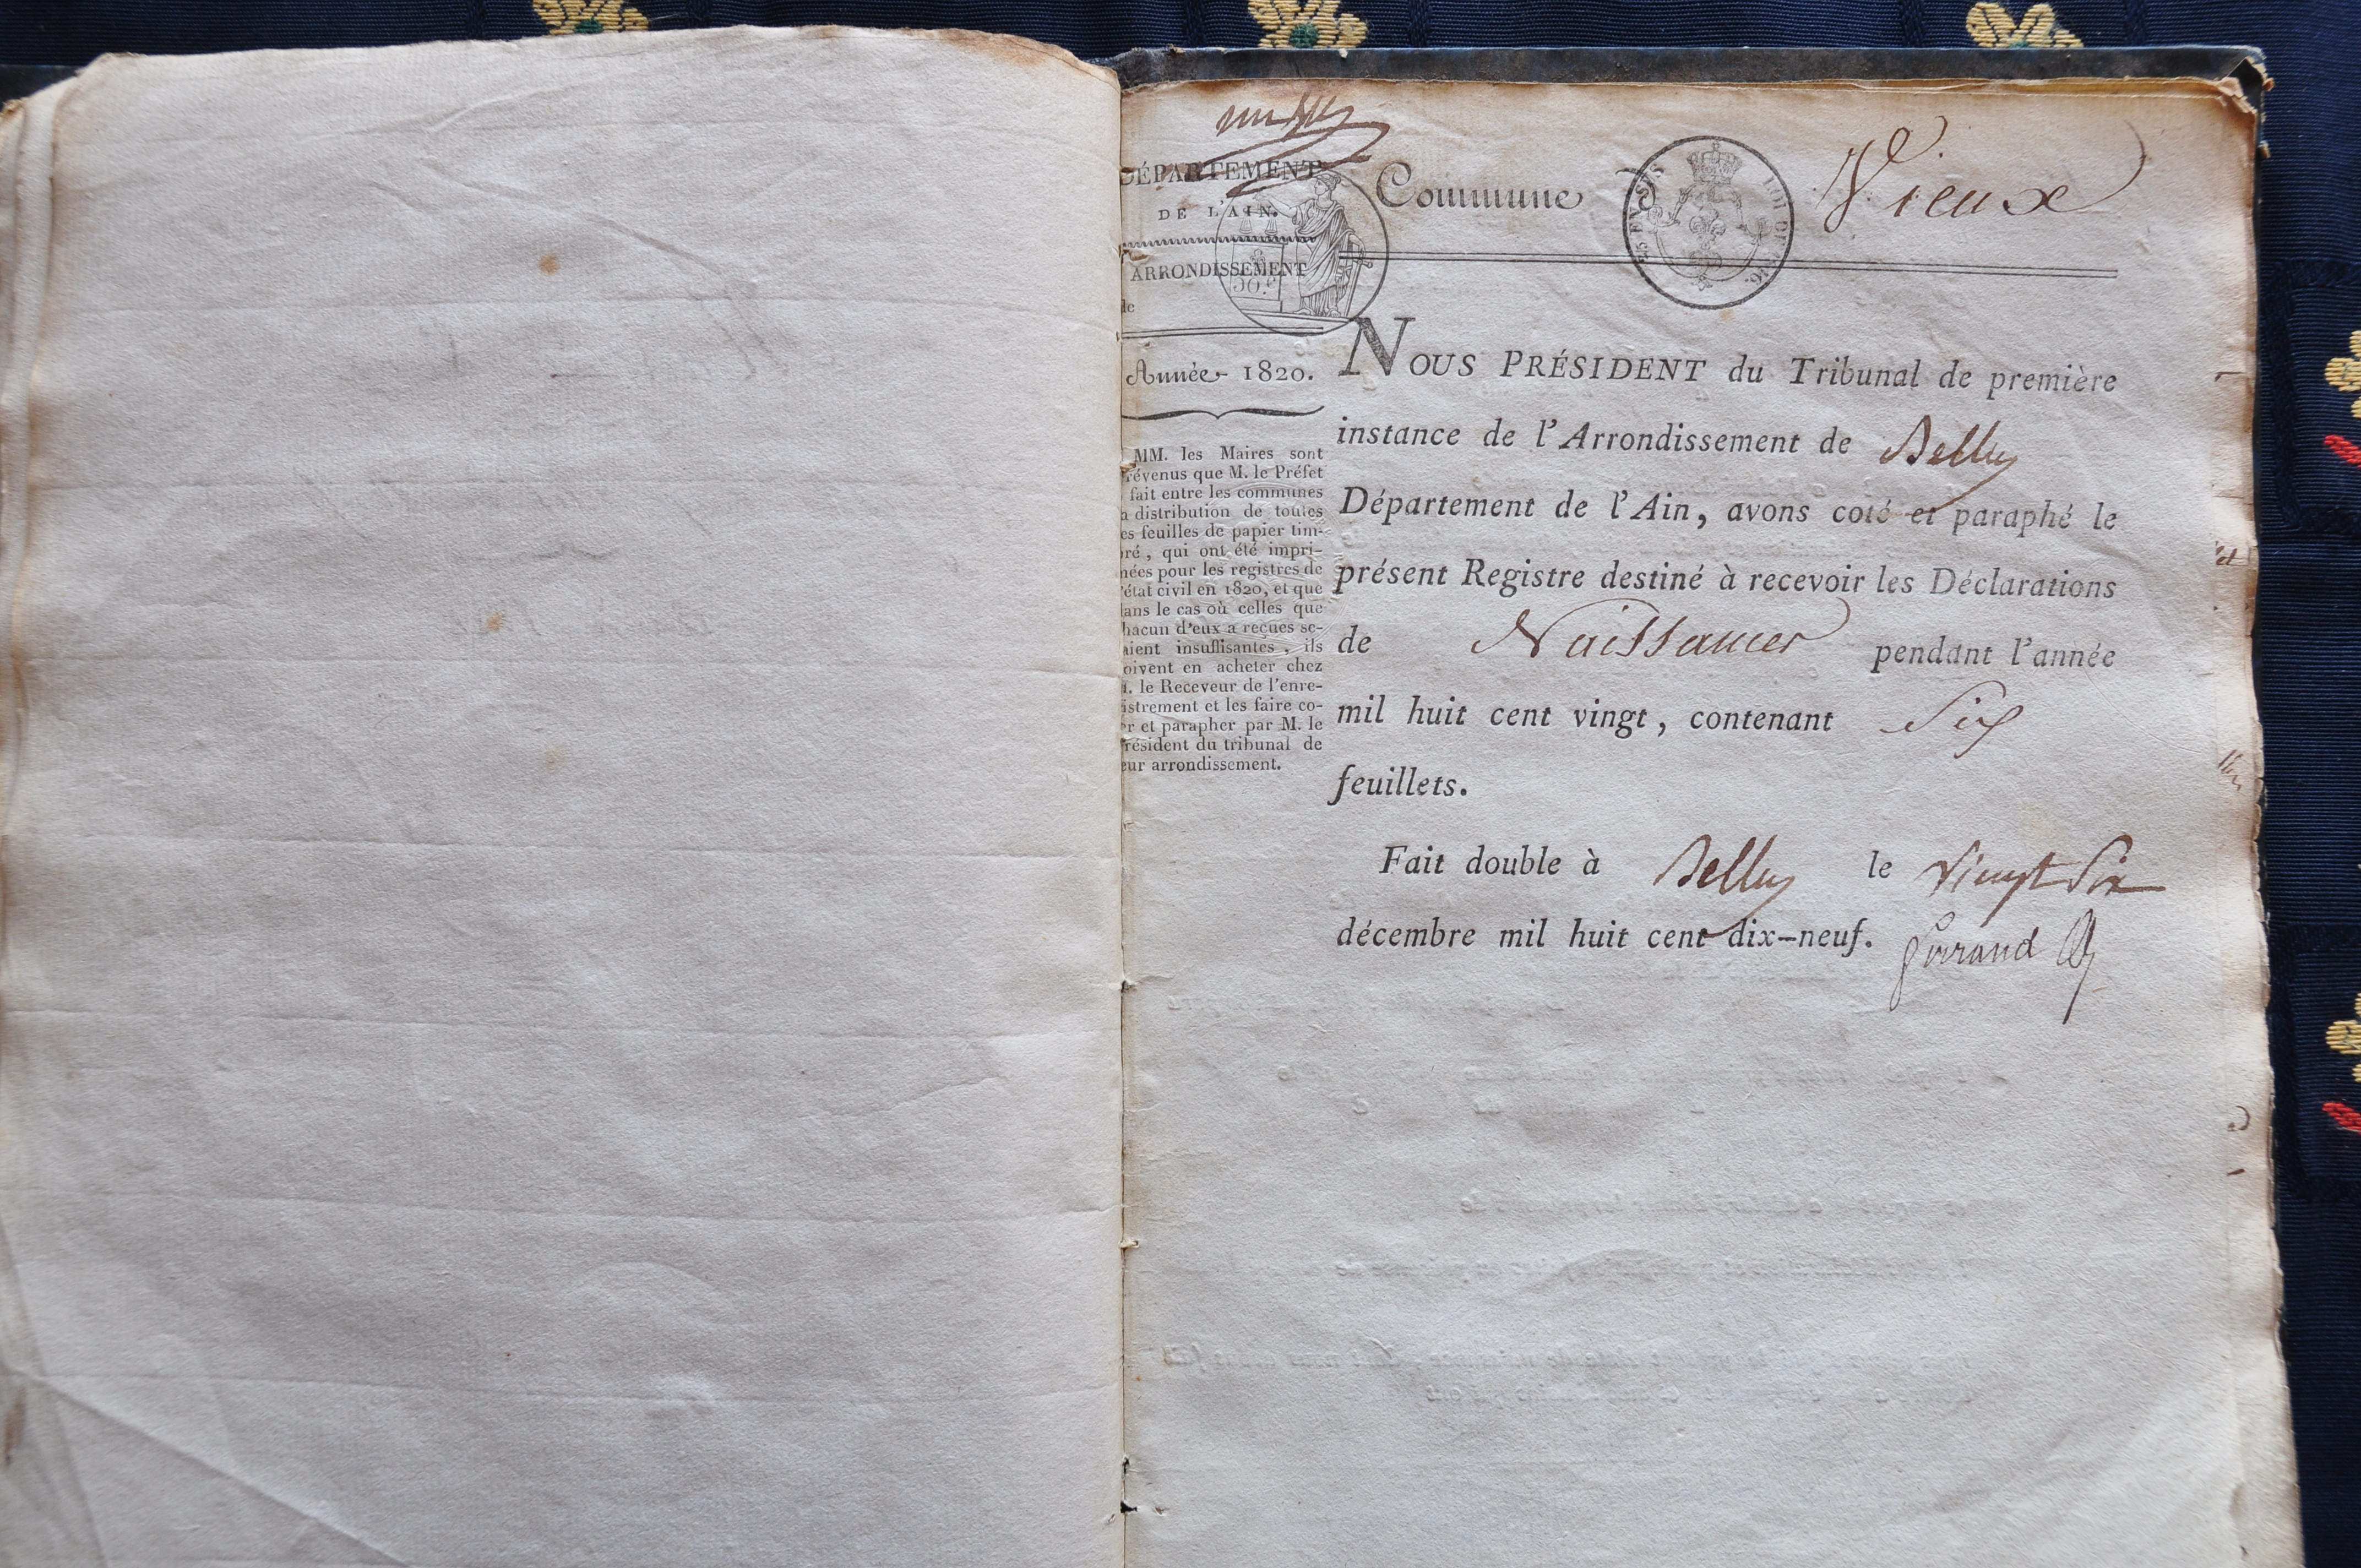 DÉPARTEMENT
DE L'AIN.
ARRONDISSEMENT
de
Année 1820.
MM. les Maires sont
révenus que M. le Préfet
fait entre les communes
a distribution de toutes
es feuilles de papier tim-
ré, qui ont été impri-
ées pour les registres de
'état civil en 1820, et que
ans le cas où celles que
hacun d'eux a reçues se-
aient insuffisantes, ils
oivent en acheter chez
. le Receveur de l'enre-
istrement et les faire co-
r et parapher par M. le
résident du tribunal de
eur arrondissement.
Commune d Vieux
NOUS PRÉSIDENT du Tribunal de première
instance de l'Arrondissement de Belley
Département de l'Ain, avons coté et paraphé le
présent Registre destiné à recevoir les Déclarations
de Naissances pendant l'année
mil huit cent vingt, contenant Six
feuillets.
Fait double à Belley le vingt Six
décembre mil huit cent dix-neuf.